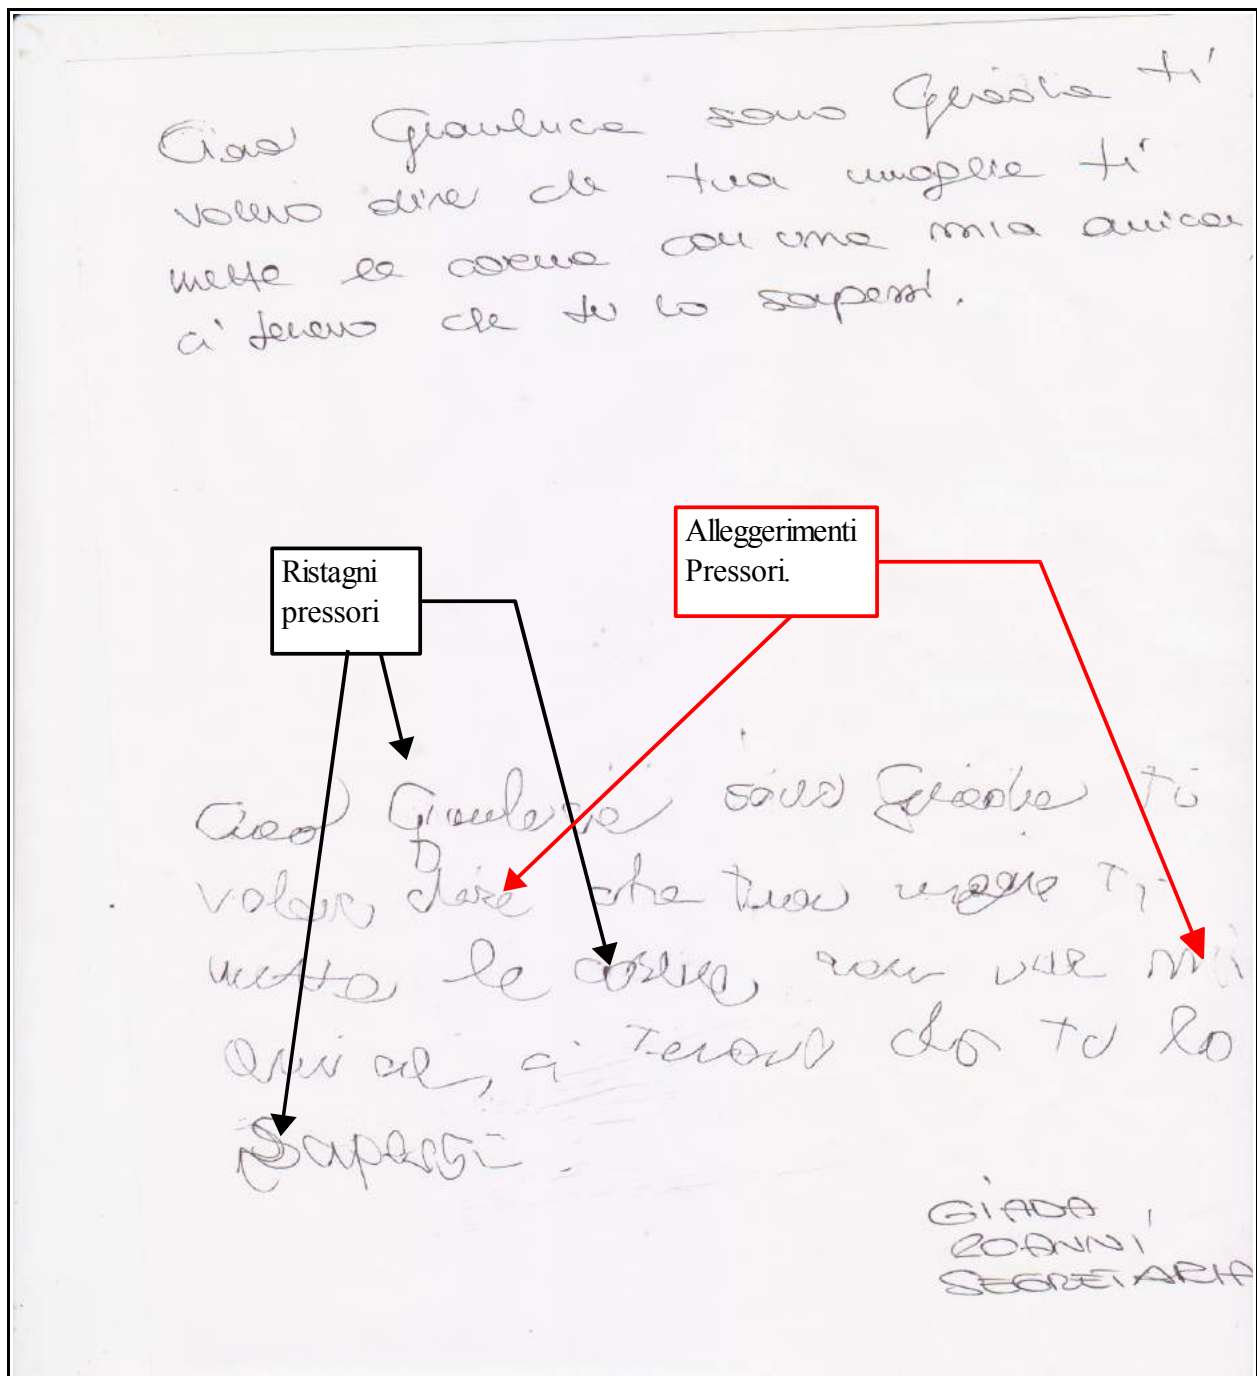 Ciao Gianluca sono Giada ti
volevo dire che tua moglie ti
mette le corna con una mia amica
ci tenevo che tu lo sapessi.
Alleggerimenti
Pressori.
Ristagni
pressori
Ciao Gianluca sono Giada ti
volevo dire che tua moglie ti
mette le corna con una mia
amica, ci tenevo che tu lo
sapessi.
GIADA
20 ANNI
SEGRETARIA